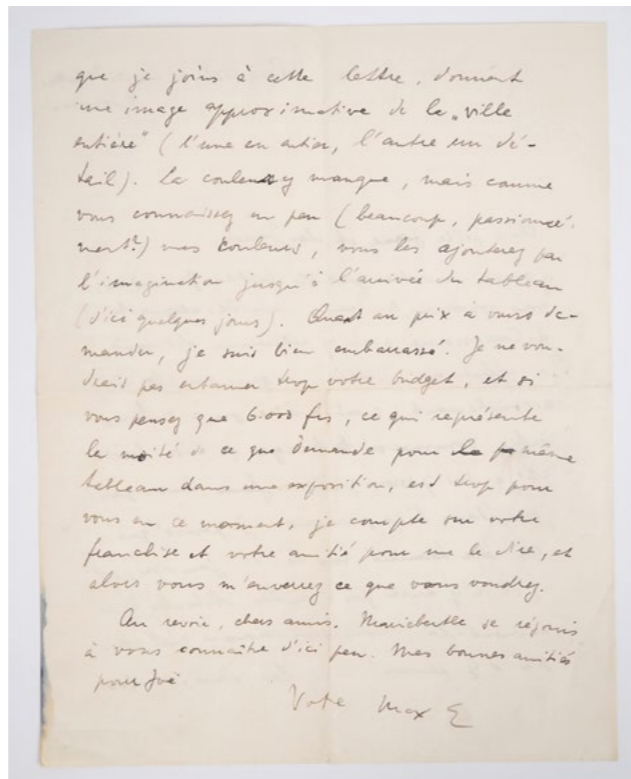 que je joins à cette lettre, donnent
une image approximative de la „ville
entière" (l'une en entier, l'autre un dé-
tail). La couleur y manque, mais comme
vous connaissez un peu (beaucoup, passionné-
ment?) mes couleurs, vous les ajouterez par
l'imagination jusqu'à l'arrivée du tableau
(d'ici quelques jours). Quant au prix à vous de-
mander, je suis bien embarrassé. Je ne vou-
drais pas entamer trop votre budget, et si
vous pensez que 6.000 frs, ce qui représente
la moitié de ce que demande pour le même
tableau dans une exposition, est trop pour
vous en ce moment, je compte sur votre
franchise et votre amitié pour me le dire, et
alors vous m'enverrez ce que vous voudrez.
Au revoir, chers amis. Marieberthe se réjouis
à vous connaître d'ici peu. Mes bonnes amitiés
pour Joë
Votre Max E